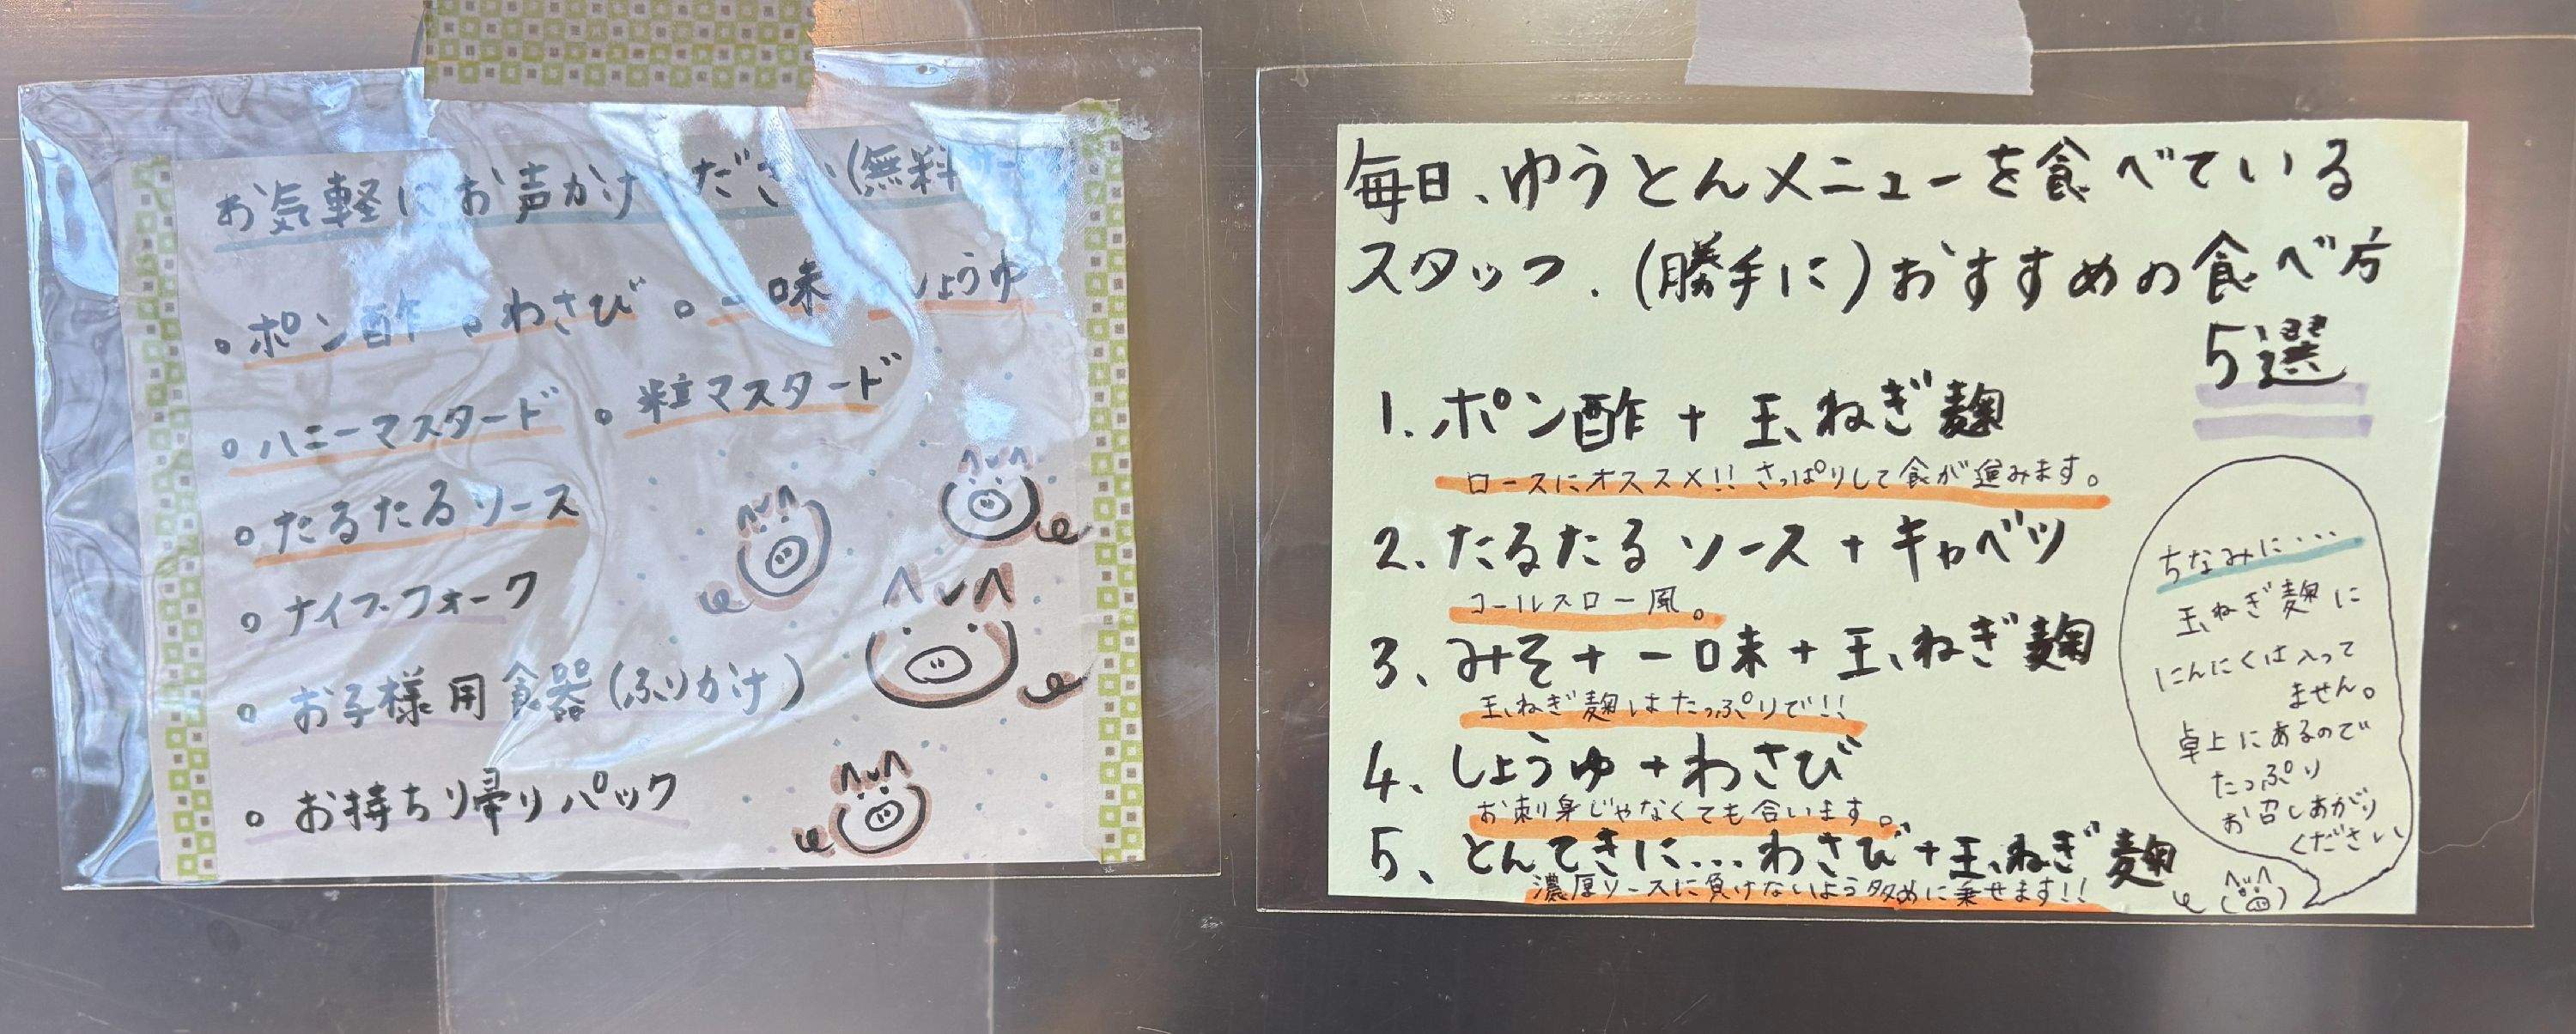 お気軽にお声かけください(無料
。ポン酢 。わさび 。一味 。しょうゆ
。ハニーマスタード 。粒マスタード
。たるたるソース
。ナイフ・フォーク
。お子様用食器(ふりかけ)
。お持ち帰りパック
毎日、ゆうとんメニューを食べている
スタッフ、(勝手に)おすすめの食べ方
5選
1. ポン酢+玉ねぎ麹
ロースにオススメ!!さっぱりして食が進みます。
2. たるたるソース+キャベツ
コールスロー風。
3、みそ+一味+玉ねぎ麹
玉ねぎ麹はたっぷりで!!
4、しょうゆ+わさび
お刺身じゃなくても合います。
5、とんてきに…わさび+玉ねぎ麹
濃厚ソースに負けないよう多めに乗せます!!
ちなみに…
玉ねぎ麹に
にんにくは入って
ません。
卓上にあるので
たっぷり
お召しあがり
ください